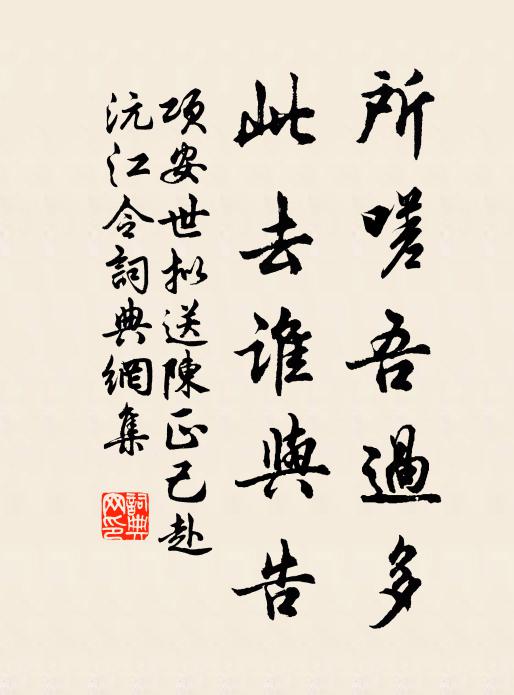 所嗟吾過多
此去誰與告
項安世拟送陳正己赴
沅江令詞典網集
詞典
网印